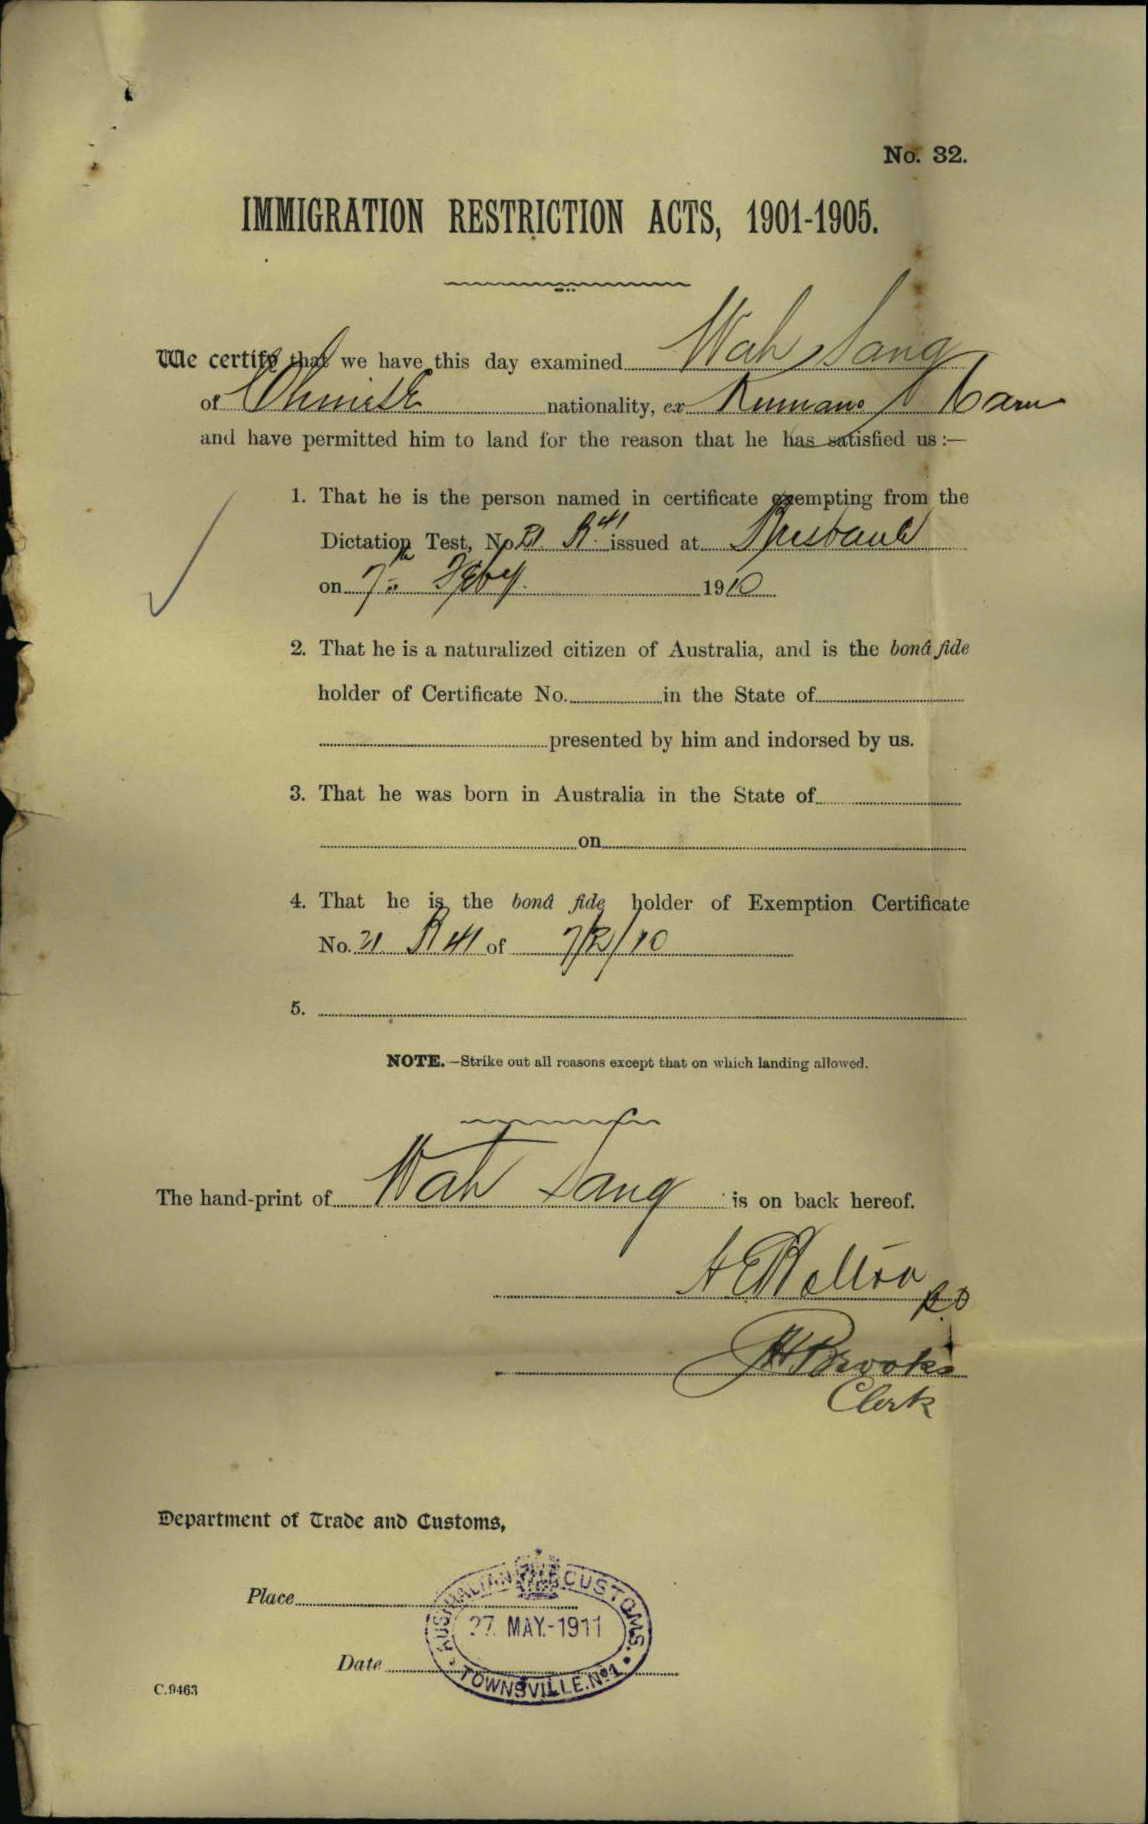 No. 32.
IMMIGRATION RESTRICTION ACTS, 1901-1905.
We certify that we have this day examined Wah Sang
of Chinese nationality, ex Kumano Maru
and have permitted him to land for the reason that he has satisfied us :—
1. That he is the person named in certificate exempting from the
Dictation Test, No 21 R 41 issued at Brisbane
on 7th Feby. 1910
2. That he is a naturalized citizen of Australia, and is the bonâ fide
holder of Certificate No. in the State of
presented by him and indorsed by us.
3. That he was born in Australia in the State of
on
4. That he is the bonâ fide holder of Exemption Certificate
No. 21 R 41 of 7/2/10
5.
NOTE.—Strike out all reasons except that on which landing allowed.
The hand-print of Wah Sang is on back hereof.
Brooks
Clerk
Department of Trade and Customs,
AUSTRALIAN CUSTOMS.
Place
27. MAY.-1911
Date
TOWNSVILLE. No 1
C.9463